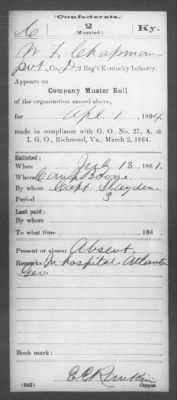 Confederate.
C 2 Ky.
(Mounted)
W. F. Chapman
Pvt, Co. D, 2 Reg't Kentucky Infantry.
Appears on
Company Muster Roll
of the organization named above,
for Apl. 1, 1864.
made in compliance with G. O. No. 27, A. &
I. G. O., Richmond, Va., March 2, 1864.
Enlisted:
When July 13, 1861.
Where Camp Boone
By whom Capt. Slayden
Period 3
Last paid:
By whom
To what time 186 .
Present or absent Absent
Remarks: In hospital Atlanta
Geo.
Book mark:
(642)
Copyist.